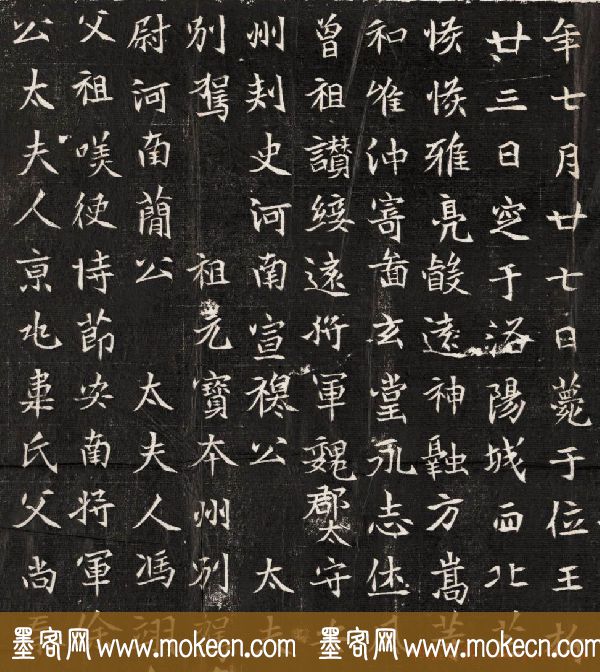 年七月廿七日薨于位王
廿三日窆于洛陽城西北
雅亮叡遠神融方嵩
和唯沖寄啚玄堂永志休
曾祖讚綏遠將軍魏郡太守
州刾史河南宣穆公 太
別駕 祖元寶本州別
尉河南蕑公 太夫人馮翊
父祖嘆使持節安南將軍
公太夫人京兆氏父尚
墨客网 www.mokecn.com 墨客网 www.mokecn.com